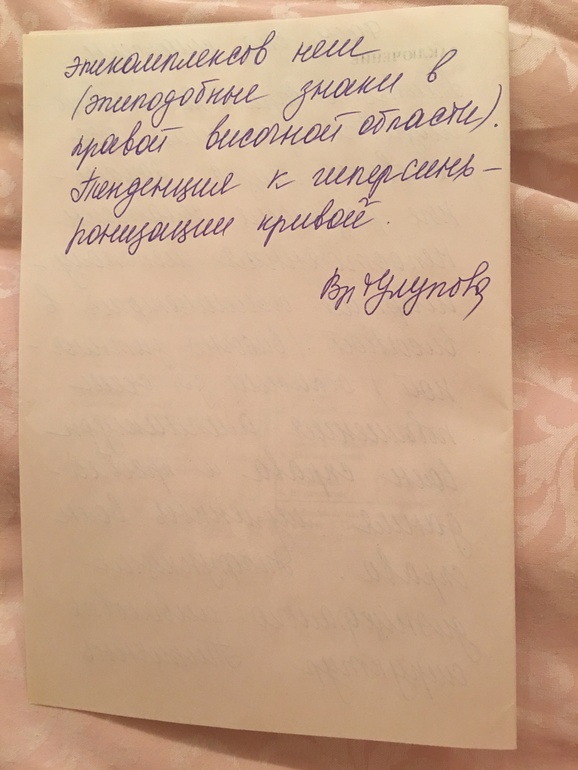 эпикомплексов нет
(эпиподобные знаки в
правой височной области).
Тенденция к гиперсинх-
ронизации кривой.
Вр Улупова